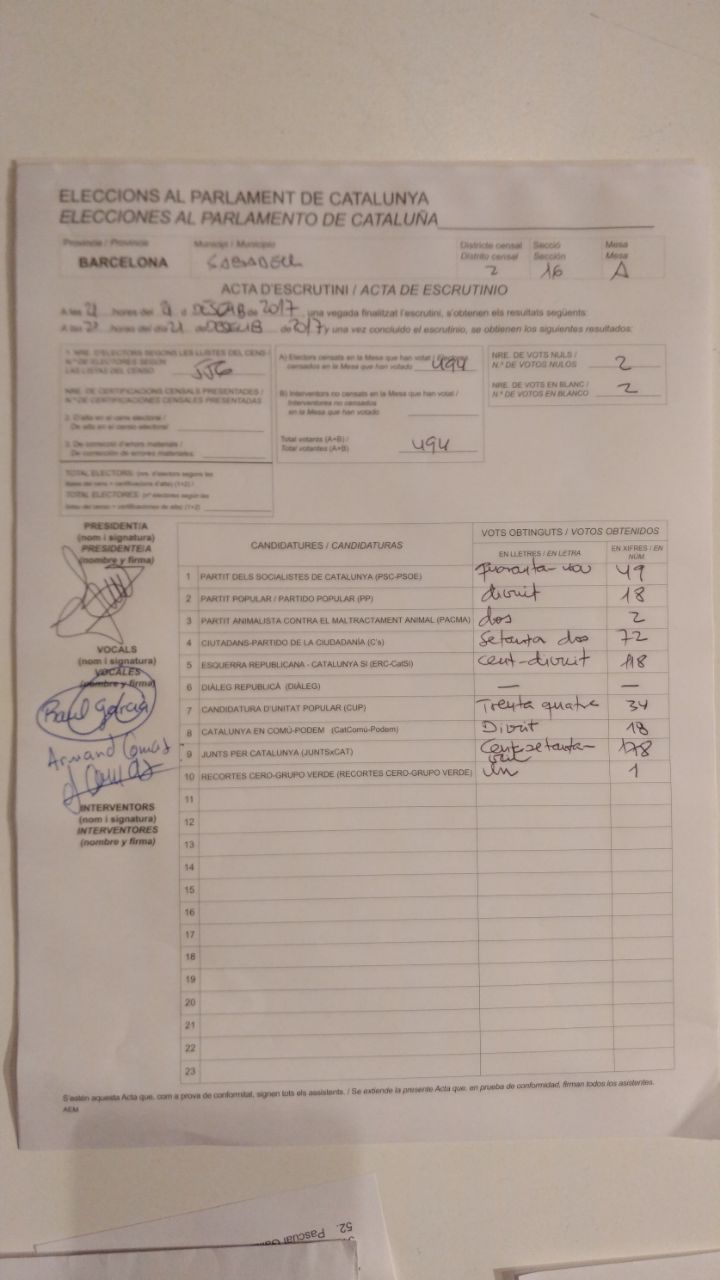 ELECCIONS AL PARLAMENT DE CATALUNYA
ELECCIONES AL PARLAMENTO DE CATALUÑA
Província / Provincia Municipi / Municipio Districte censal Secció Mesa
Distrito censal Sección Mesa
BARCELONA SABADELL 2 16 A
ACTA D'ESCRUTINI / ACTA DE ESCRUTINIO
A les 21 hores del 21 d DESEMB de 2017 una vegada finalitzat l'escrutini, s'obtenen els resultats següents:
A las 21 horas del día 21 de DESEMB de 2017 y una vez concluido el escrutinio, se obtienen los siguientes resultados:
1. NRE. D'ELECTORS SEGONS LES LLISTES DEL CENS /
N.º DE ELECTORES SEGÚN
LAS LISTAS DEL CENSO 556
NRE. DE CERTIFICACIONS CENSALS PRESENTADES /
N.º DE CERTIFICACIONES CENSALES PRESENTADAS
2. D'alta en el cens electoral /
De alta en el censo electoral
3. De correcció d'errors materials /
De corrección de errores materiales
TOTAL ELECTORS: (nre. d'electors segons les
llistes del cens + certificacions d'alta) (1+2) /
TOTAL ELECTORES: (nº electores según las
listas del censo + certificaciones de alta) (1+2)
A) Electors censats en la Mesa que han votat / Electores
censados en la Mesa que han votado 494
B) Interventors no censats en la Mesa que han votat /
Interventores no censados
en la Mesa que han votado
Total votants (A+B) /
Total votantes (A+B) 494
NRE. DE VOTS NULS /
N.º DE VOTOS NULOS 2
NRE. DE VOTS EN BLANC /
N.º DE VOTOS EN BLANCO 2
PRESIDENT/A
(nom i signatura)
PRESIDENTE/A
(nombre y firma)
VOCALS
(nom i signatura)
VOCALES
(nombre y firma)
Raul Garcia
Armand Comas
INTERVENTORS
(nom i signatura)
INTERVENTORES
(nombre y firma)
CANDIDATURES / CANDIDATURAS VOTS OBTINGUTS / VOTOS OBTENIDOS
EN LLETRES / EN LETRA EN XIFRES / EN NÚM
1 PARTIT DELS SOCIALISTES DE CATALUNYA (PSC-PSOE) quaranta nou 49
2 PARTIT POPULAR / PARTIDO POPULAR (PP) divuit 18
3 PARTIT ANIMALISTA CONTRA EL MALTRACTAMENT ANIMAL (PACMA) dos 2
4 CIUTADANS-PARTIDO DE LA CIUDADANÍA (C's) Setanta dos 72
5 ESQUERRA REPUBLICANA - CATALUNYA SÍ (ERC-CatSí) cent-divuit 118
6 DIÀLEG REPUBLICÀ (DIÀLEG) — —
7 CANDIDATURA D'UNITAT POPULAR (CUP) Trenta quatre 34
8 CATALUNYA EN COMÚ-PODEM (CatComú-Podem) Divuit 18
9 JUNTS PER CATALUNYA (JUNTSxCAT) Cent setanta- vuit 178
10 RECORTES CERO-GRUPO VERDE (RECORTES CERO-GRUPO VERDE) un 1
11
12
13
14
15
16
17
18
19
20
21
22
23
S'estén aquesta Acta que, com a prova de conformitat, signen tots els assistents. / Se extiende la presente Acta que, en prueba de conformidad, firman todos los asistentes.
AEM
52. Pascual